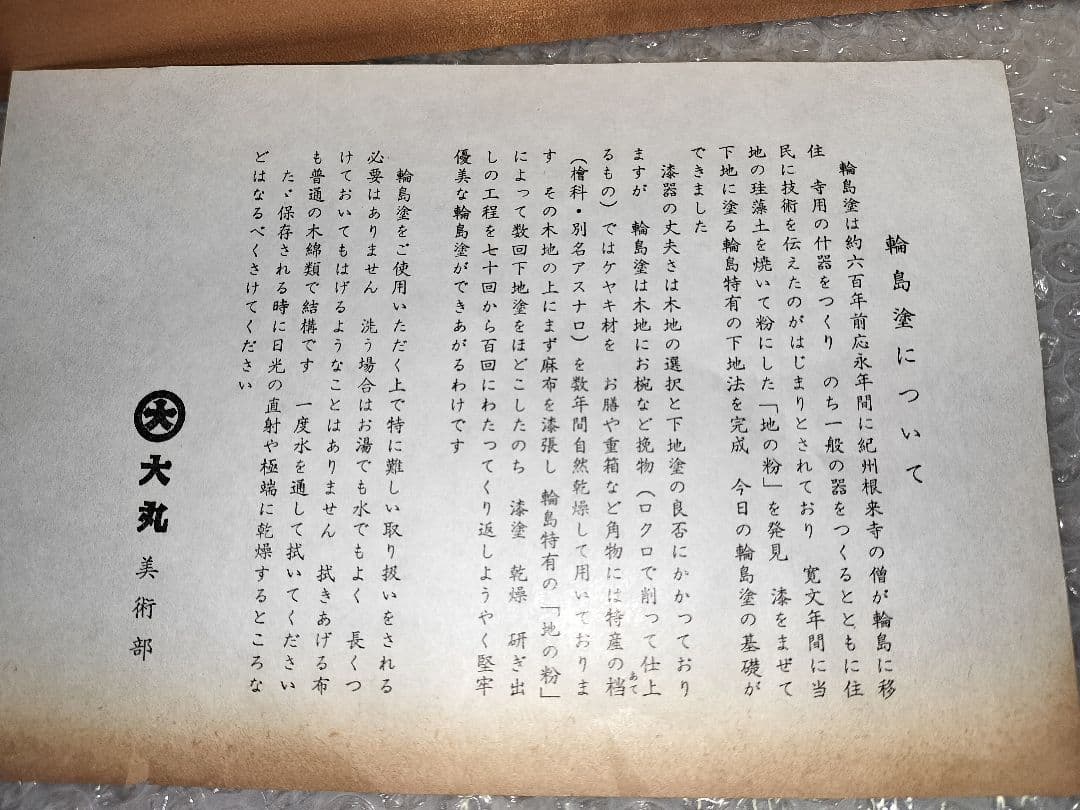 輪島塗について
輪島塗は約六百年前応永年間に紀州根来寺の僧が輪島に移
住　寺用の什器をつくり　のち一般の器をつくるとともに住
民に技術を伝えたのがはじまりとされており　寛文年間に当
地の珪藻土を焼いて粉にした「地の粉」を発見　漆をまぜて
下地に塗る輪島特有の下地法を完成　今日の輪島塗の基礎が
できました
漆器の丈夫さは木地の選択と下地塗の良否にかかっており
ますが　輪島塗は木地にお椀など挽物（ロクロで削って仕上
るもの）ではケヤキ材を　お膳や重箱など角物には特産の档
あて
（檜科・別名アスナロ）を数年間自然乾燥して用いておりま
す　その木地の上にまず麻布を漆張し　輪島特有の「地の粉」
によって数回下地塗をほどこしたのち　漆塗　乾燥　研ぎ出
しの工程を七十回から百回にわたってくり返しようやく堅牢
優美な輪島塗ができあがるわけです
輪島塗をご使用いただく上で特に難しい取り扱いをされる
必要はありません　洗う場合はお湯でも水でもよく　長くつ
けておいてもはげるようなことはありません　拭きあげる布
も普通の木綿類で結構です　一度水を通して拭いてください
たゞ保存される時に日光の直射や極端に乾燥するところな
どはなるべくさけてください
大 大丸 美術部